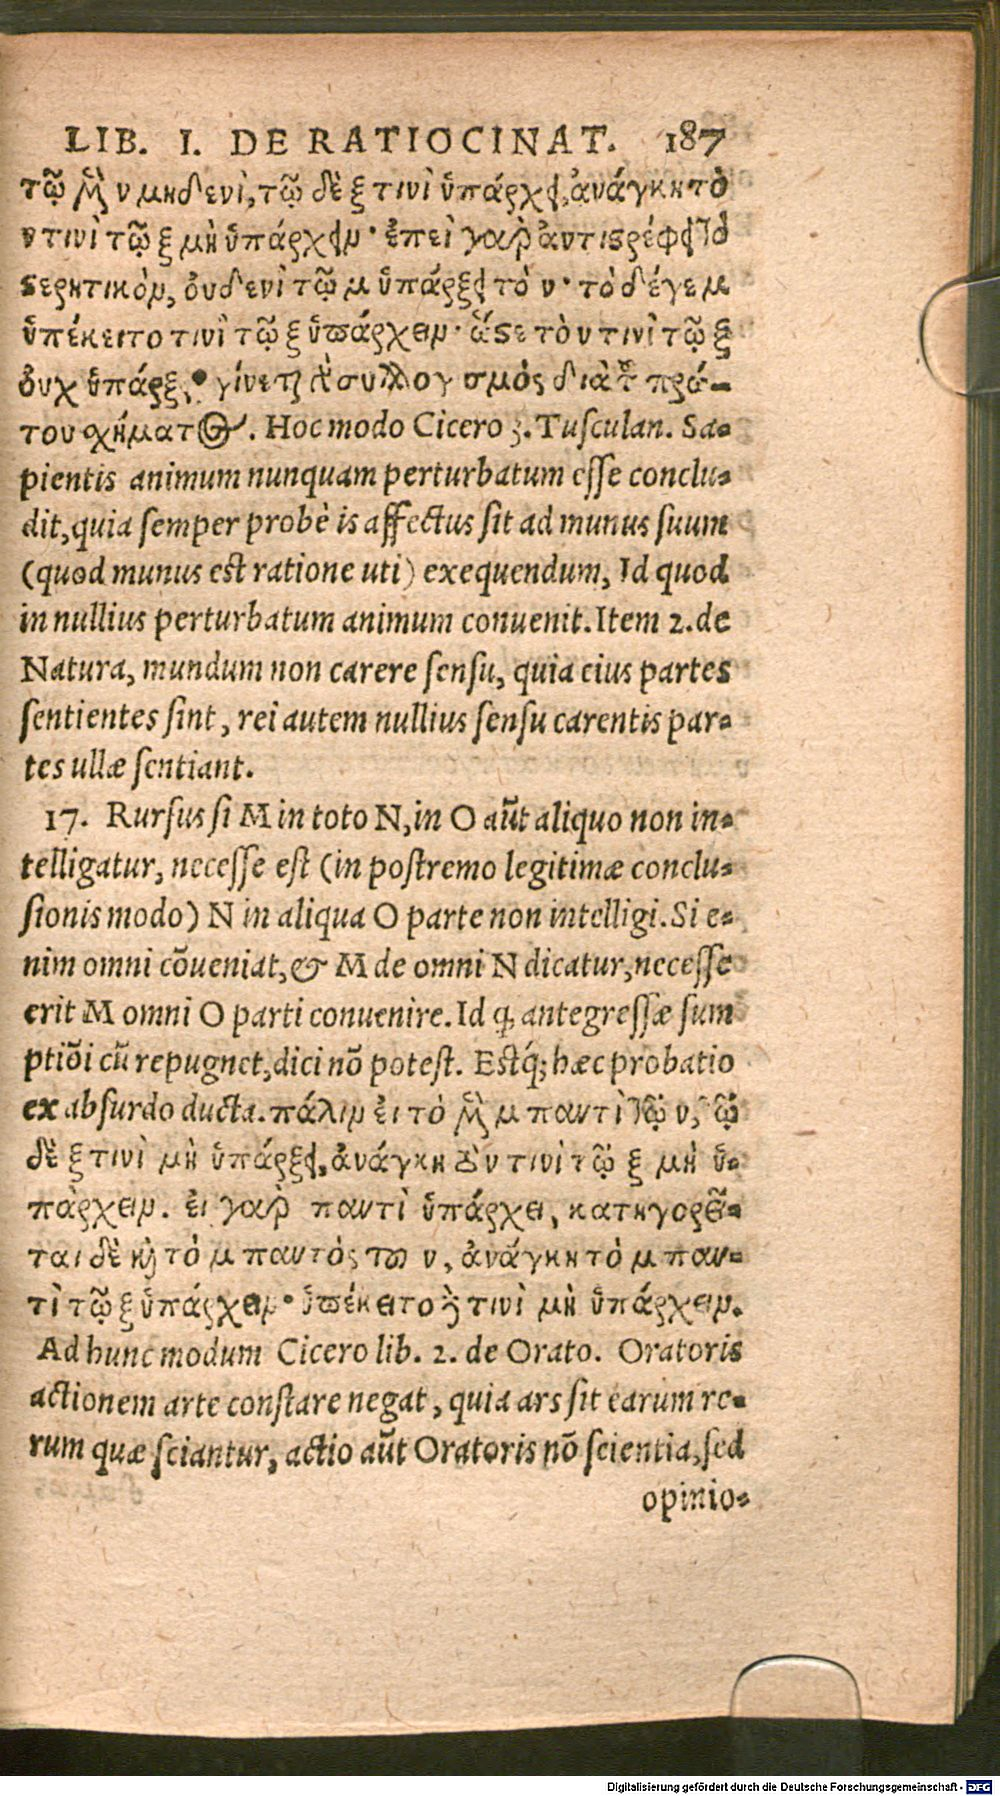 LIB. I. DE RATIOCINAT. 187
τῷ μὲν ν μηδενὶ, τῷ δὲ ξ τινὶ ὑπάρχῃ, ἀνάγκη τὸ
ν τινὶ τῷ ξ μὴ ὑπάρχειν· ἐπεὶ γαρ ἀντιστρέφει τὸ
στερητικὸν, ὀυδενὶ τῷ μ ὑπάρξει τὸ ν· τὸ δέγε μ
ὑπέκειτο τινὶ τῷ ξ ὑπάρχειν· ὥστε τὸ ν τινὶ τῷ ξ
ὀυχ ὑπάρξει· γίνεται γὰρ συλλογισμὸς διὰ τοῦ πρώ-
του σχήματος. Hoc modo Cicero 3. Tusculan. Sa-
pientis animum nunquam perturbatum esse conclu-
dit, quia semper probè is affectus sit ad munus suum
(quod munus est ratione uti) exequendum, Id quod
in nullius perturbatum animum conuenit. Item 2. de
Natura, mundum non carere sensu, quia eius partes
sentientes sint, rei autem nullius sensu carentis par-
tes ullæ sentiant.
17. Rursus si M in toto N, in O aūt aliquo non in-
telligatur, necesse est (in postremo legitimæ conclu-
sionis modo) N in aliqua O parte non intelligi. Si e-
nim omni cōueniat, & M de omni N dicatur, necesse
erit M omni O parti conuenire. Id q̃ antegressæ sum
ptiōi cū repugnet, dici nō potest. Estq́; hæc probatio
ex absurdo ducta. πάλιν ἐι τὸ μὲν μ παντὶ τῷ ν, τῷ
δὲ ξ τινὶ μὴ ὑπάρξει, ἀνάγκη τὸ ν τινὶ τῷ ξ μὴ ὑ-
πὰρχειν. ἐι γαρ παντὶ ὑπάρχει, κατηγορεῖ-
ται δὲ καὶ τὸ μ παντὸς τοῦ ν, ἀνάγκη τὸ μ παν-
τὶ τῷ ξ ὑπάρχειν· ὑπέκειτο δὲ τινὶ μὴ ὑπάρχειν.
Ad hunc modum Cicero lib. 2. de Orato. Oratoris
actionem arte constare negat, quia ars sit earum re-
rum quæ sciantur, actio aūt Oratoris nō scientia, sed
opinio-
Digitalisierung gefördert durch die Deutsche Forschungsgemeinschaft - DFG